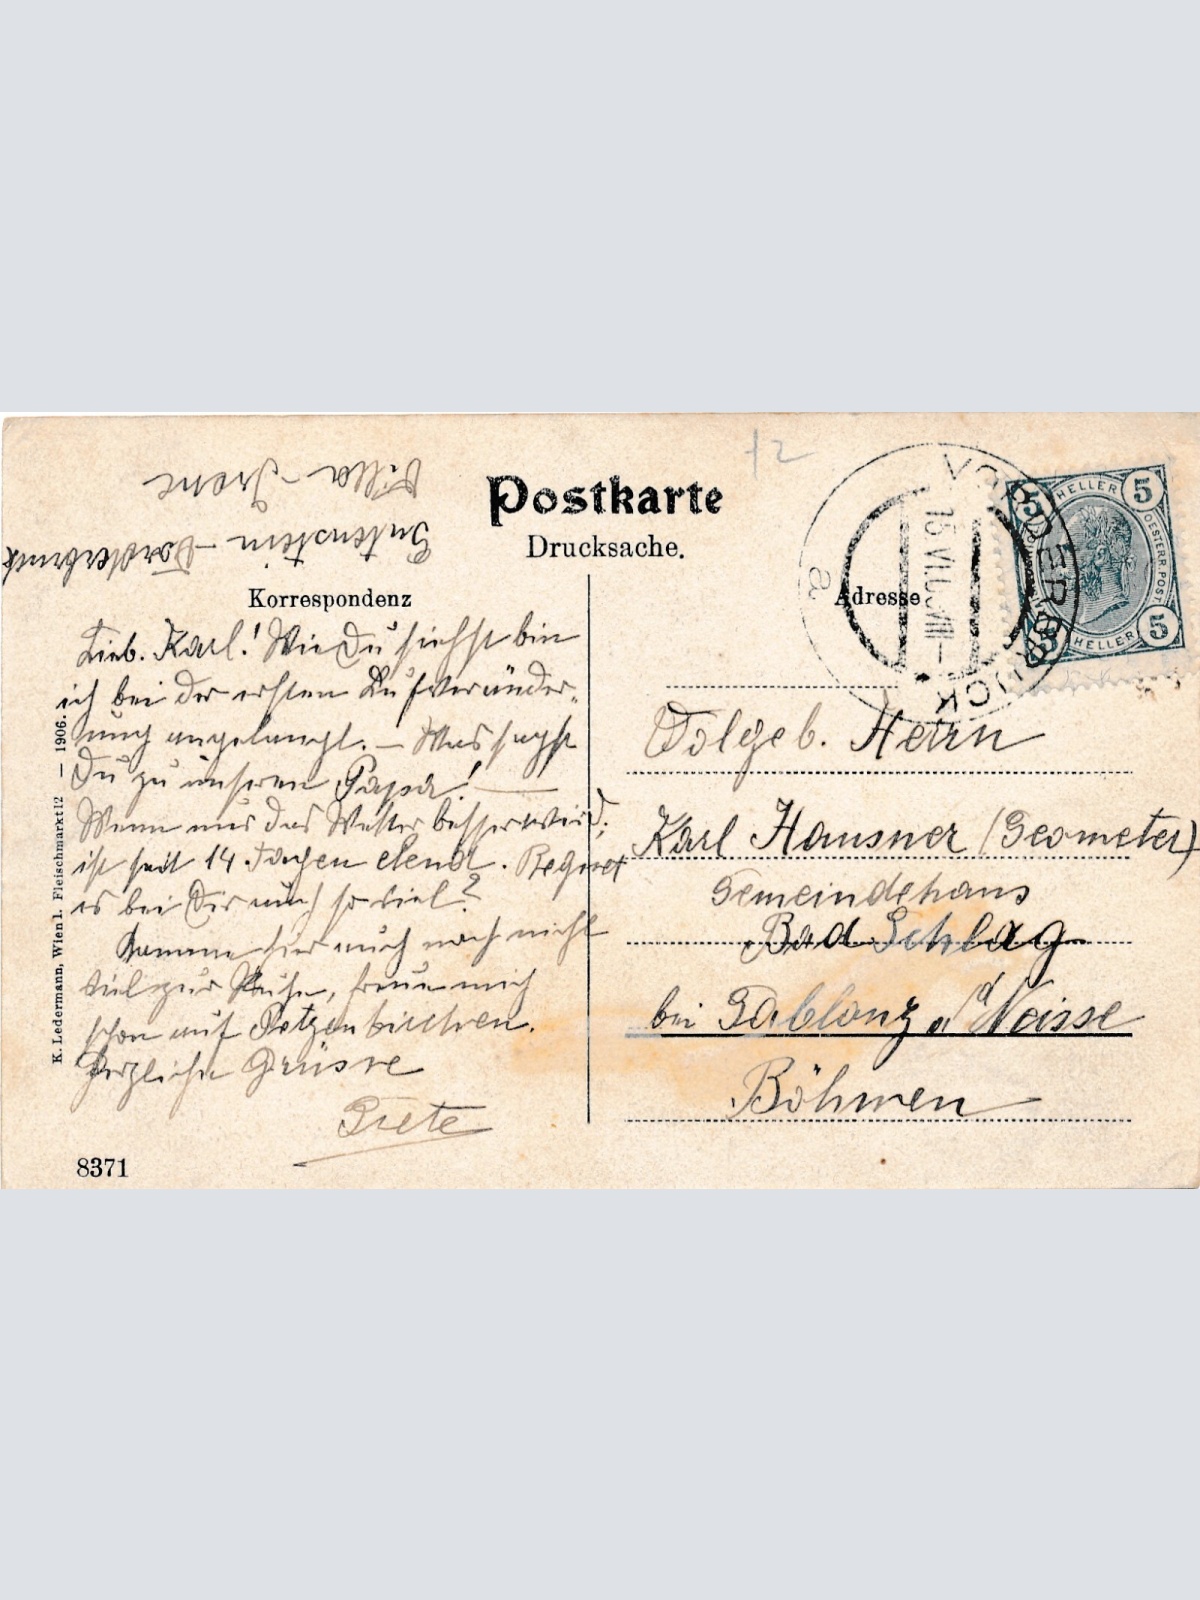 Villa Irene
Gutenstein - Vorderbruck
Postkarte
Drucksache.
Korrespondenz
Adresse
Lieb. Karl! Wie Du siehst bin
ich bei der ersten Luftveränder-
ung angelangt. — Was sagst
Du zu unseren Papa! —
Wenn nur das Wetter besser wird,
ist seit 14 Tagen elend. Regnet
es bei Dir auch so viel?
Komme hier auch noch nicht
viel zur Ruhe, freue mich
schon auf Petzenkirchen.
Herzliche Grüsse
Grete
8371
K. Ledermann, Wien I. Fleischmarkt 12 — 1906.
12
VORDERBRUCK
15 VI
a
5 HELLER 5
OESTERR. POST
5 HELLER 5
Wolgeb. Herrn
Karl Hausner (Geometer)
Gemeindehaus
Bad Schlag
bei Gablonz a/d Neisse
Böhmen